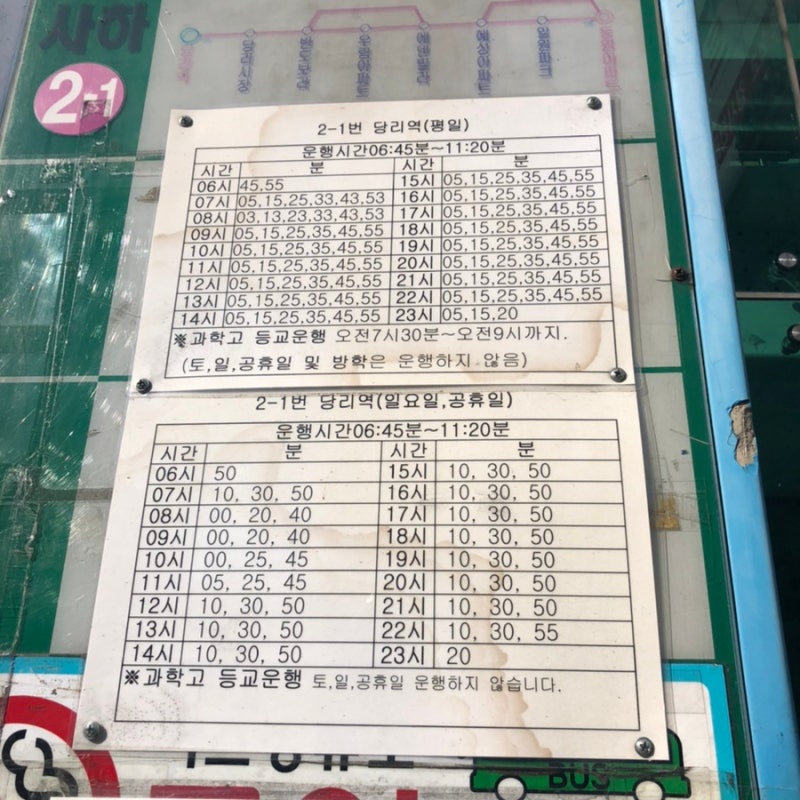 사하
2-1
2-1번 당리역(평일)
운행시간06:45분~11:20분
시간 분 시간 분
06시 45,55 15시 05,15,25,35,45,55
07시 05,15,25,33,43,53 16시 05,15,25,35,45,55
08시 03,13,23,33,43,53 17시 05,15,25,35,45,55
09시 05,15,25,35,45,55 18시 05,15,25,35,45,55
10시 05,15,25,35,45,55 19시 05,15,25,35,45,55
11시 05,15,25,35,45,55 20시 05,15,25,35,45,55
12시 05,15,25,35,45,55 21시 05,15,25,35,45,55
13시 05,15,25,35,45,55 22시 05,15,25,35,45,55
14시 05,15,25,35,45,55 23시 05,15,20
※과학고 등교운행 오전7시30분~오전9시까지.
(토,일,공휴일 및 방학은 운행하지 않음)
2-1번 당리역(일요일,공휴일)
운행시간06:45분~11:20분
시간 분 시간 분
06시 50 15시 10, 30, 50
07시 10, 30, 50 16시 10, 30, 50
08시 00, 20, 40 17시 10, 30, 50
09시 00, 20, 40 18시 10, 30, 50
10시 00, 25, 45 19시 10, 30, 50
11시 05, 25, 45 20시 10, 30, 50
12시 10, 30, 50 21시 10, 30, 50
13시 10, 30, 50 22시 10, 30, 55
14시 10, 30, 50 23시 20
※과학고 등교운행 토,일,공휴일 운행하지 않습니다.
BUS